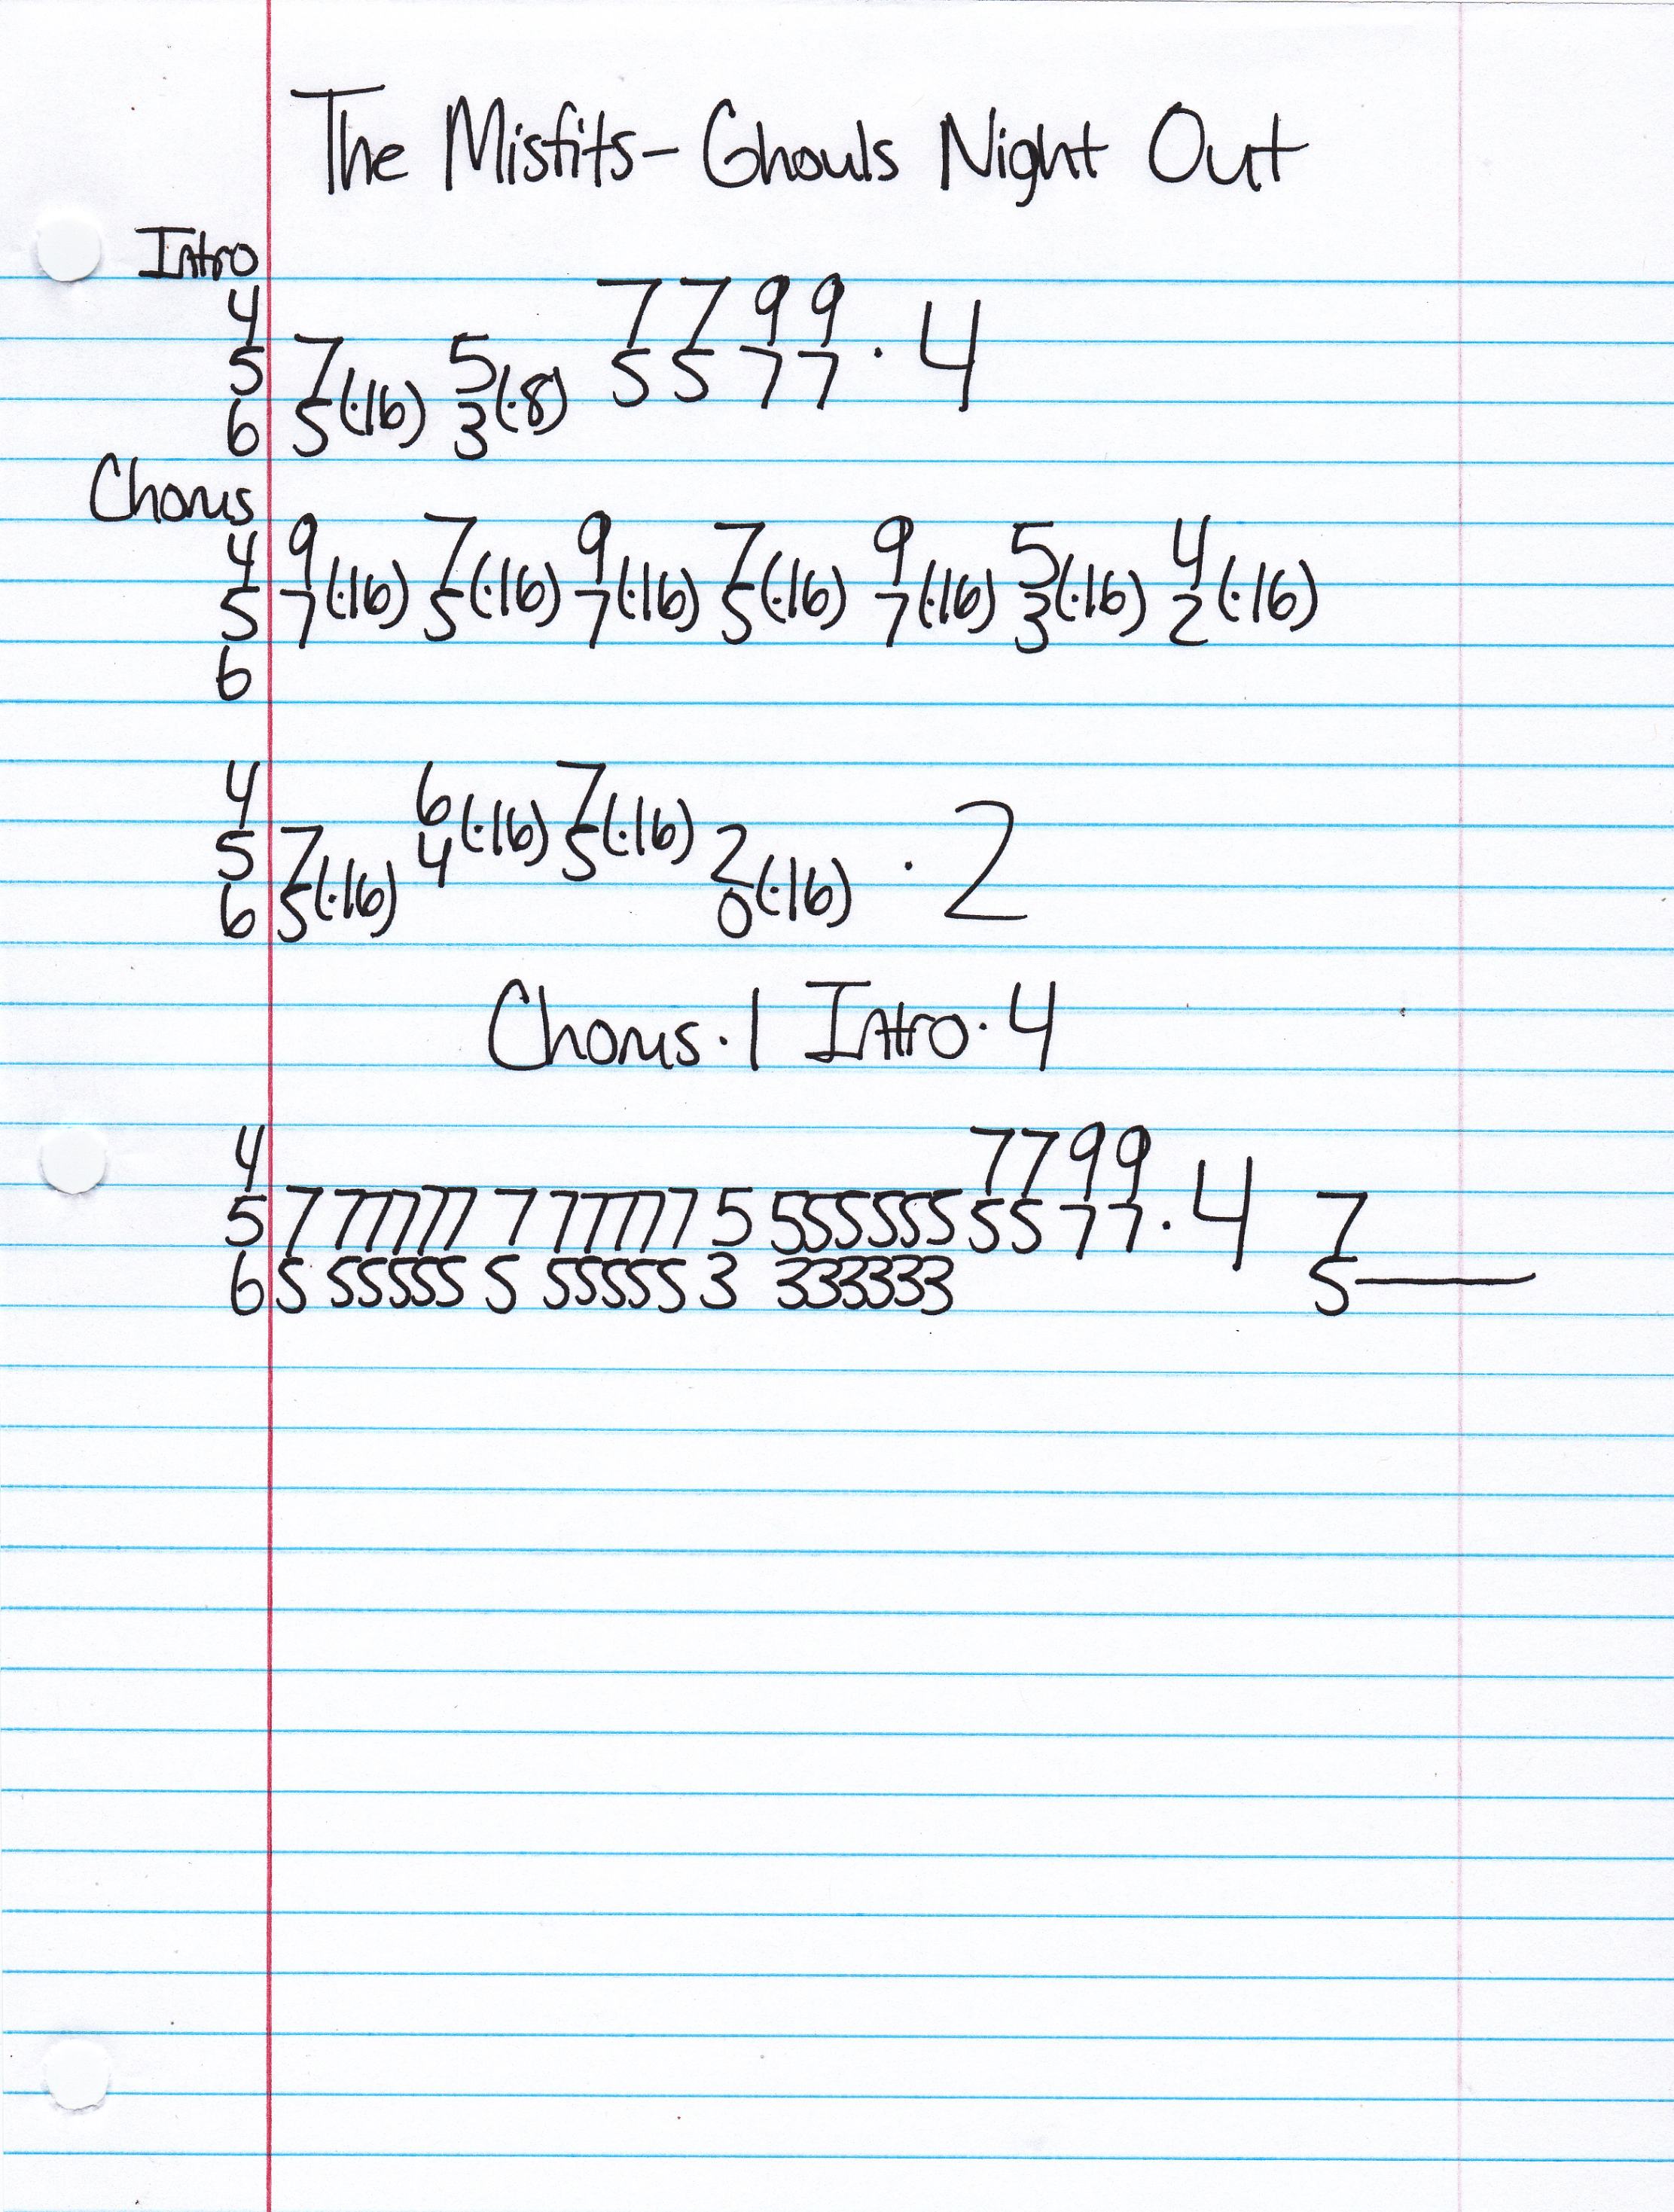 The Misfits - Ghouls Night Out
Intro
4 7 7 9 9
5 7 5 5 5 7 7 · 4
6 5(·16) 3(·8)
Chorus
4 9 7 9 7 9 5 4
5 7(·16) 5(·16) 7(·16) 5(·16) 7(·16) 3(·16) 2(·16)
6
4 6 7
5 7 4(·16) 5(·16) 2 · 2
6 5(·16) 0(·16)
Chorus · 1 Intro · 4
4 7 7 9 9
5 7 77777 7 77777 5 555555 5 5 7 7 · 4 7
6 5 55555 5 55555 3 333333 5